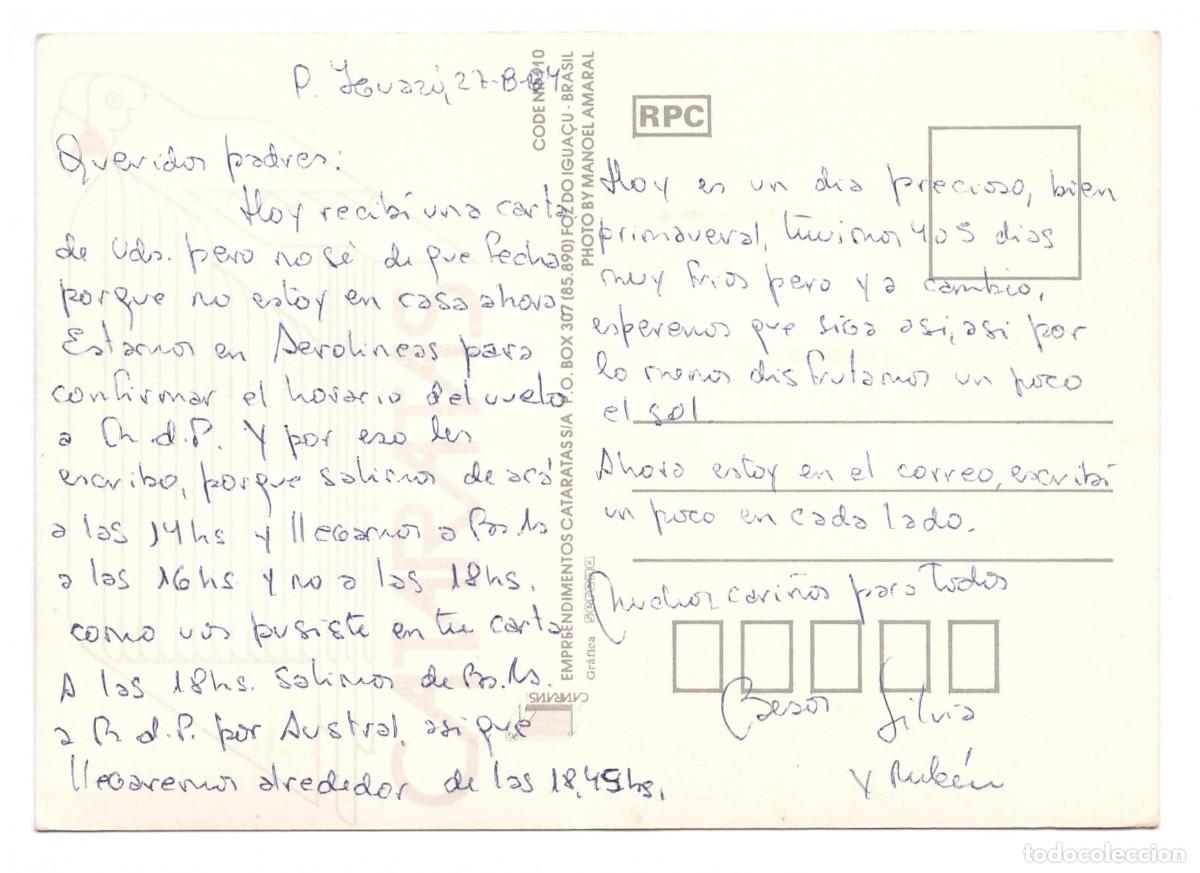 P. Iguazú, 27-8-84
Queridos padres:
Hoy recibí una carta
de Uds. pero no sé de que fecha
porque no estoy en casa ahora
Estamos en Aerolineas para
confirmar el horario del vuelo
a M. d. P. Y por eso les
escribo, porque salimos de acá
a las 14 hs y llegamos a Bs. As
a las 16 hs y no a las 18 hs.
como vos pusiste en tu carta
A las 18 hs. salimos de Bs. As.
a M. d. P. por Austral, asi que
llegaremos alrededor de las 18,45 hs.
CODE Nº 210
EMPREENDIMENTOS CATARATAS S/A P.O. BOX 307 (85.890) FOZ DO IGUAÇU - BRASIL
PHOTO BY MANOEL AMARAL
Gráfica
CATARATAS
CATARATAS
RPC
Hoy es un dia precioso, bien
primaveral, tuvimos 4 o 5 dias
muy frios pero ya cambio,
esperemos que siga asi, asi por
lo menos disfrutamos un poco
el sol.
Ahora estoy en el correo, escribí
un poco en cada lado.
Muchos cariños para todos
Besos Silvia
y Rubén
todocoleccion